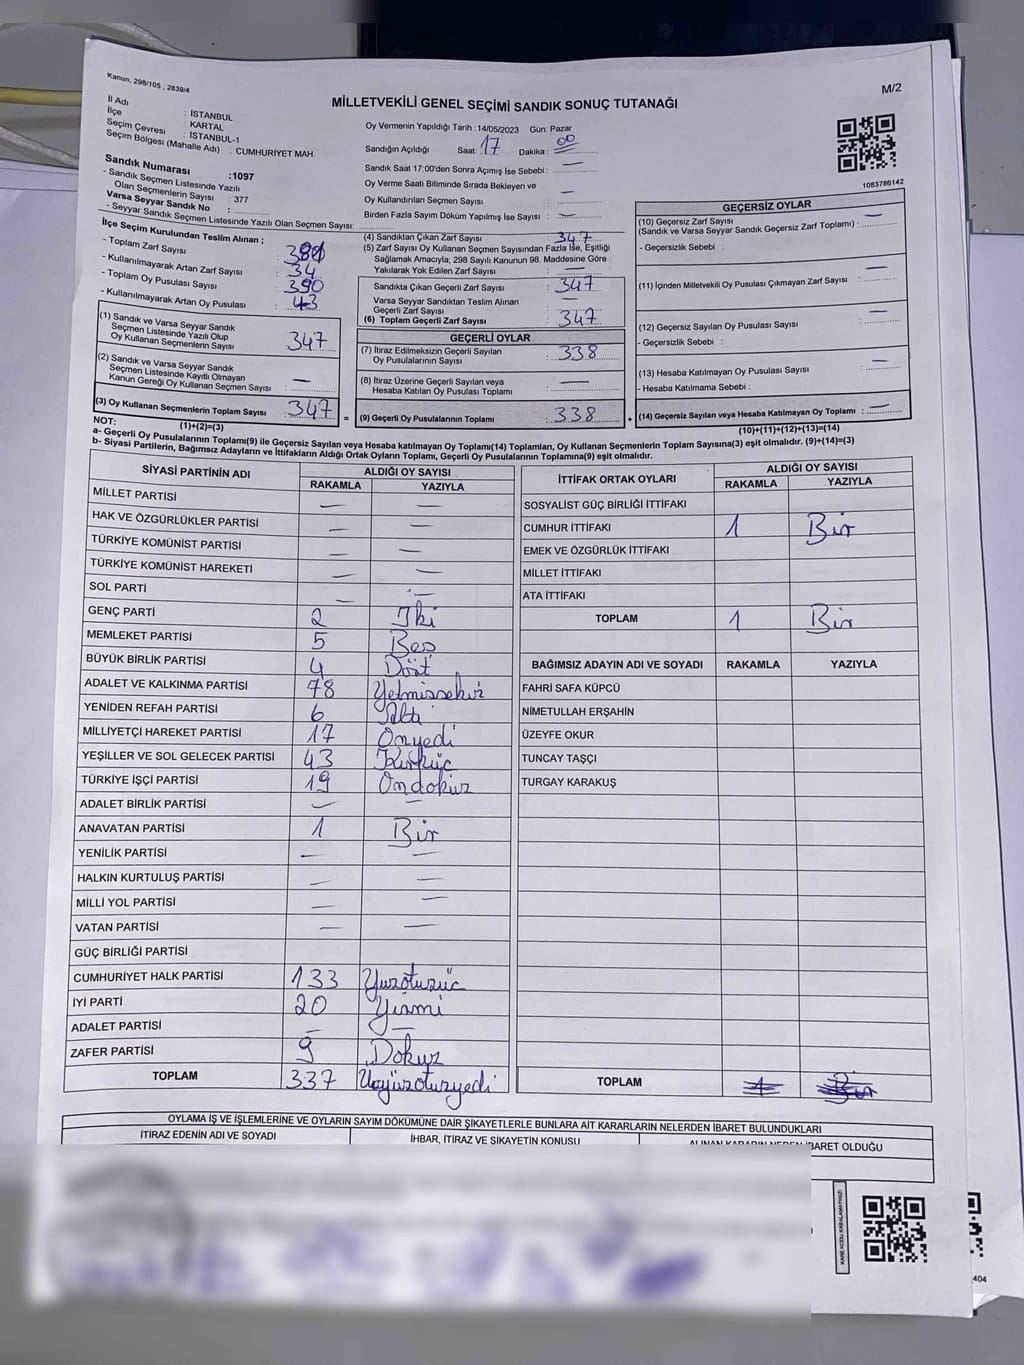 Kanun, 298/105 , 2839/4
M/2
MİLLETVEKİLİ GENEL SEÇİMİ SANDIK SONUÇ TUTANAĞI
İl Adı : İSTANBUL
İlçe : KARTAL
Seçim Çevresi : İSTANBUL-1
Seçim Bölgesi (Mahalle Adı) : CUMHURİYET MAH.
Sandık Numarası :1097
- Sandık Seçmen Listesinde Yazılı
Olan Seçmenlerin Sayısı : 377
Varsa Seyyar Sandık No :
- Seyyar Sandık Seçmen Listesinde Yazılı Olan Seçmen Sayısı:
Oy Vermenin Yapıldığı Tarih :14/05/2023 Gün: Pazar
Sandığın Açıldığı Saat: 17 Dakika : 00
Sandık Saat 17:00'den Sonra Açımış İse Sebebi : —
Oy Verme Saati Bitiminde Sırada Bekleyen ve
Oy Kullandırılan Seçmen Sayısı : —
Birden Fazla Sayım Döküm Yapılmış İse Sayısı : —
1083786142
İlçe Seçim Kurulundan Teslim Alınan ;
- Toplam Zarf Sayısı :
- Kullanılmayarak Artan Zarf Sayısı : 34
- Toplam Oy Pusulası Sayısı : 390
- Kullanılmayarak Artan Oy Pusulası : 43
(1) Sandık ve Varsa Seyyar Sandık
Seçmen Listesinde Yazılı Olup
Oy Kullanan Seçmenlerin Sayısı : 347
(2) Sandık ve Varsa Seyyar Sandık
Seçmen Listesinde Kayıtlı Olmayan
Kanun Gereği Oy Kullanan Seçmen Sayısı : —
(3) Oy Kullanan Seçmenlerin Toplam Sayısı : 347 =
(1)+(2)=(3)
(4) Sandıktan Çıkan Zarf Sayısı : 347
(5) Zarf Sayısı Oy Kullanan Seçmen Sayısından Fazla İse, Eşitliği
Sağlamak Amacıyla; 298 Sayılı Kanunun 98. Maddesine Göre
Yakılarak Yok Edilen Zarf Sayısı : —
Sandıkta Çıkan Geçerli Zarf Sayısı : 347
Varsa Seyyar Sandıktan Teslim Alınan
Geçerli Zarf Sayısı : —
(6) Toplam Geçerli Zarf Sayısı : 347
GEÇERLİ OYLAR
(7) İtiraz Edilmeksizin Geçerli Sayılan
Oy Pusulalarının Sayısı : 338
(8) İtiraz Üzerine Geçerli Sayılan veya
Hesaba Katılan Oy Pusulası Toplamı : —
(9) Geçerli Oy Pusulalarının Toplamı : 338 +
GEÇERSİZ OYLAR
(10) Geçersiz Zarf Sayısı
(Sandık ve Varsa Seyyar Sandık Geçersiz Zarf Toplamı) : —
- Geçersizlik Sebebi :
(11) İçinden Milletvekili Oy Pusulası Çıkmayan Zarf Sayısı : —
(12) Geçersiz Sayılan Oy Pusulası Sayısı : —
- Geçersizlik Sebebi :
(13) Hesaba Katılmayan Oy Pusulası Sayısı : —
- Hesaba Katılmama Sebebi :
(14) Geçersiz Sayılan veya Hesaba Katılmayan Oy Toplamı : —
(10)+(11)+(12)+(13)=(14)
NOT:
a- Geçerli Oy Pusulalarının Toplamı(9) ile Geçersiz Sayılan veya Hesaba katılmayan Oy Toplamı(14) Toplamları, Oy Kullanan Seçmenlerin Toplam Sayısına(3) eşit olmalıdır. (9)+(14)=(3)
b- Siyasi Partilerin, Bağımsız Adayların ve İttifakların Aldığı Ortak Oyların Toplamı, Geçerli Oy Pusulalarının Toplamına(9) eşit olmalıdır.
SİYASİ PARTİNİN ADI ALDIĞI OY SAYISI
RAKAMLA YAZIYLA
MİLLET PARTİSİ — —
HAK VE ÖZGÜRLÜKLER PARTİSİ — —
TÜRKİYE KOMÜNİST PARTİSİ — —
TÜRKİYE KOMÜNİST HAREKETİ — —
SOL PARTİ — —
GENÇ PARTİ 2 İki
MEMLEKET PARTİSİ 5 Beş
BÜYÜK BİRLİK PARTİSİ 4 Dört
ADALET VE KALKINMA PARTİSİ 78 Yetmişsekiz
YENİDEN REFAH PARTİSİ 6 Altı
MİLLİYETÇİ HAREKET PARTİSİ 17 Onyedi
YEŞİLLER VE SOL GELECEK PARTİSİ 43 Kırküç
TÜRKİYE İŞÇİ PARTİSİ 19 Ondokuz
ADALET BİRLİK PARTİSİ — —
ANAVATAN PARTİSİ 1 Bir
YENİLİK PARTİSİ — —
HALKIN KURTULUŞ PARTİSİ — —
MİLLİ YOL PARTİSİ — —
VATAN PARTİSİ — —
GÜÇ BİRLİĞİ PARTİSİ
CUMHURİYET HALK PARTİSİ 133 Yüzotuzüç
İYİ PARTİ 20 Yirmi
ADALET PARTİSİ — —
ZAFER PARTİSİ 9 Dokuz
TOPLAM 337 Üçyüzotuzyedi
İTTİFAK ORTAK OYLARI ALDIĞI OY SAYISI
RAKAMLA YAZIYLA
SOSYALİST GÜÇ BİRLİĞİ İTTİFAKI
CUMHUR İTTİFAKI 1 Bir
EMEK VE ÖZGÜRLÜK İTTİFAKI
MİLLET İTTİFAKI
ATA İTTİFAKI
TOPLAM 1 Bir
BAĞIMSIZ ADAYIN ADI VE SOYADI RAKAMLA YAZIYLA
FAHRİ SAFA KÜPCÜ
NİMETULLAH ERŞAHİN
ÜZEYFE OKUR
TUNCAY TAŞÇI
TURGAY KARAKUŞ
TOPLAM 1 Bir
OYLAMA İŞ VE İŞLEMLERİNE VE OYLARIN SAYIM DÖKÜMÜNE DAİR ŞİKAYETLERLE BUNLARA AİT KARARLARIN NELERDEN İBARET BULUNDUKLARI
İTİRAZ EDENİN ADI VE SOYADI İHBAR, İTİRAZ VE ŞİKAYETİN KONUSU ALINAN KARARIN NEDEN İBARET OLDUĞU
KARE KODU KARALAMAYINIZ!
404